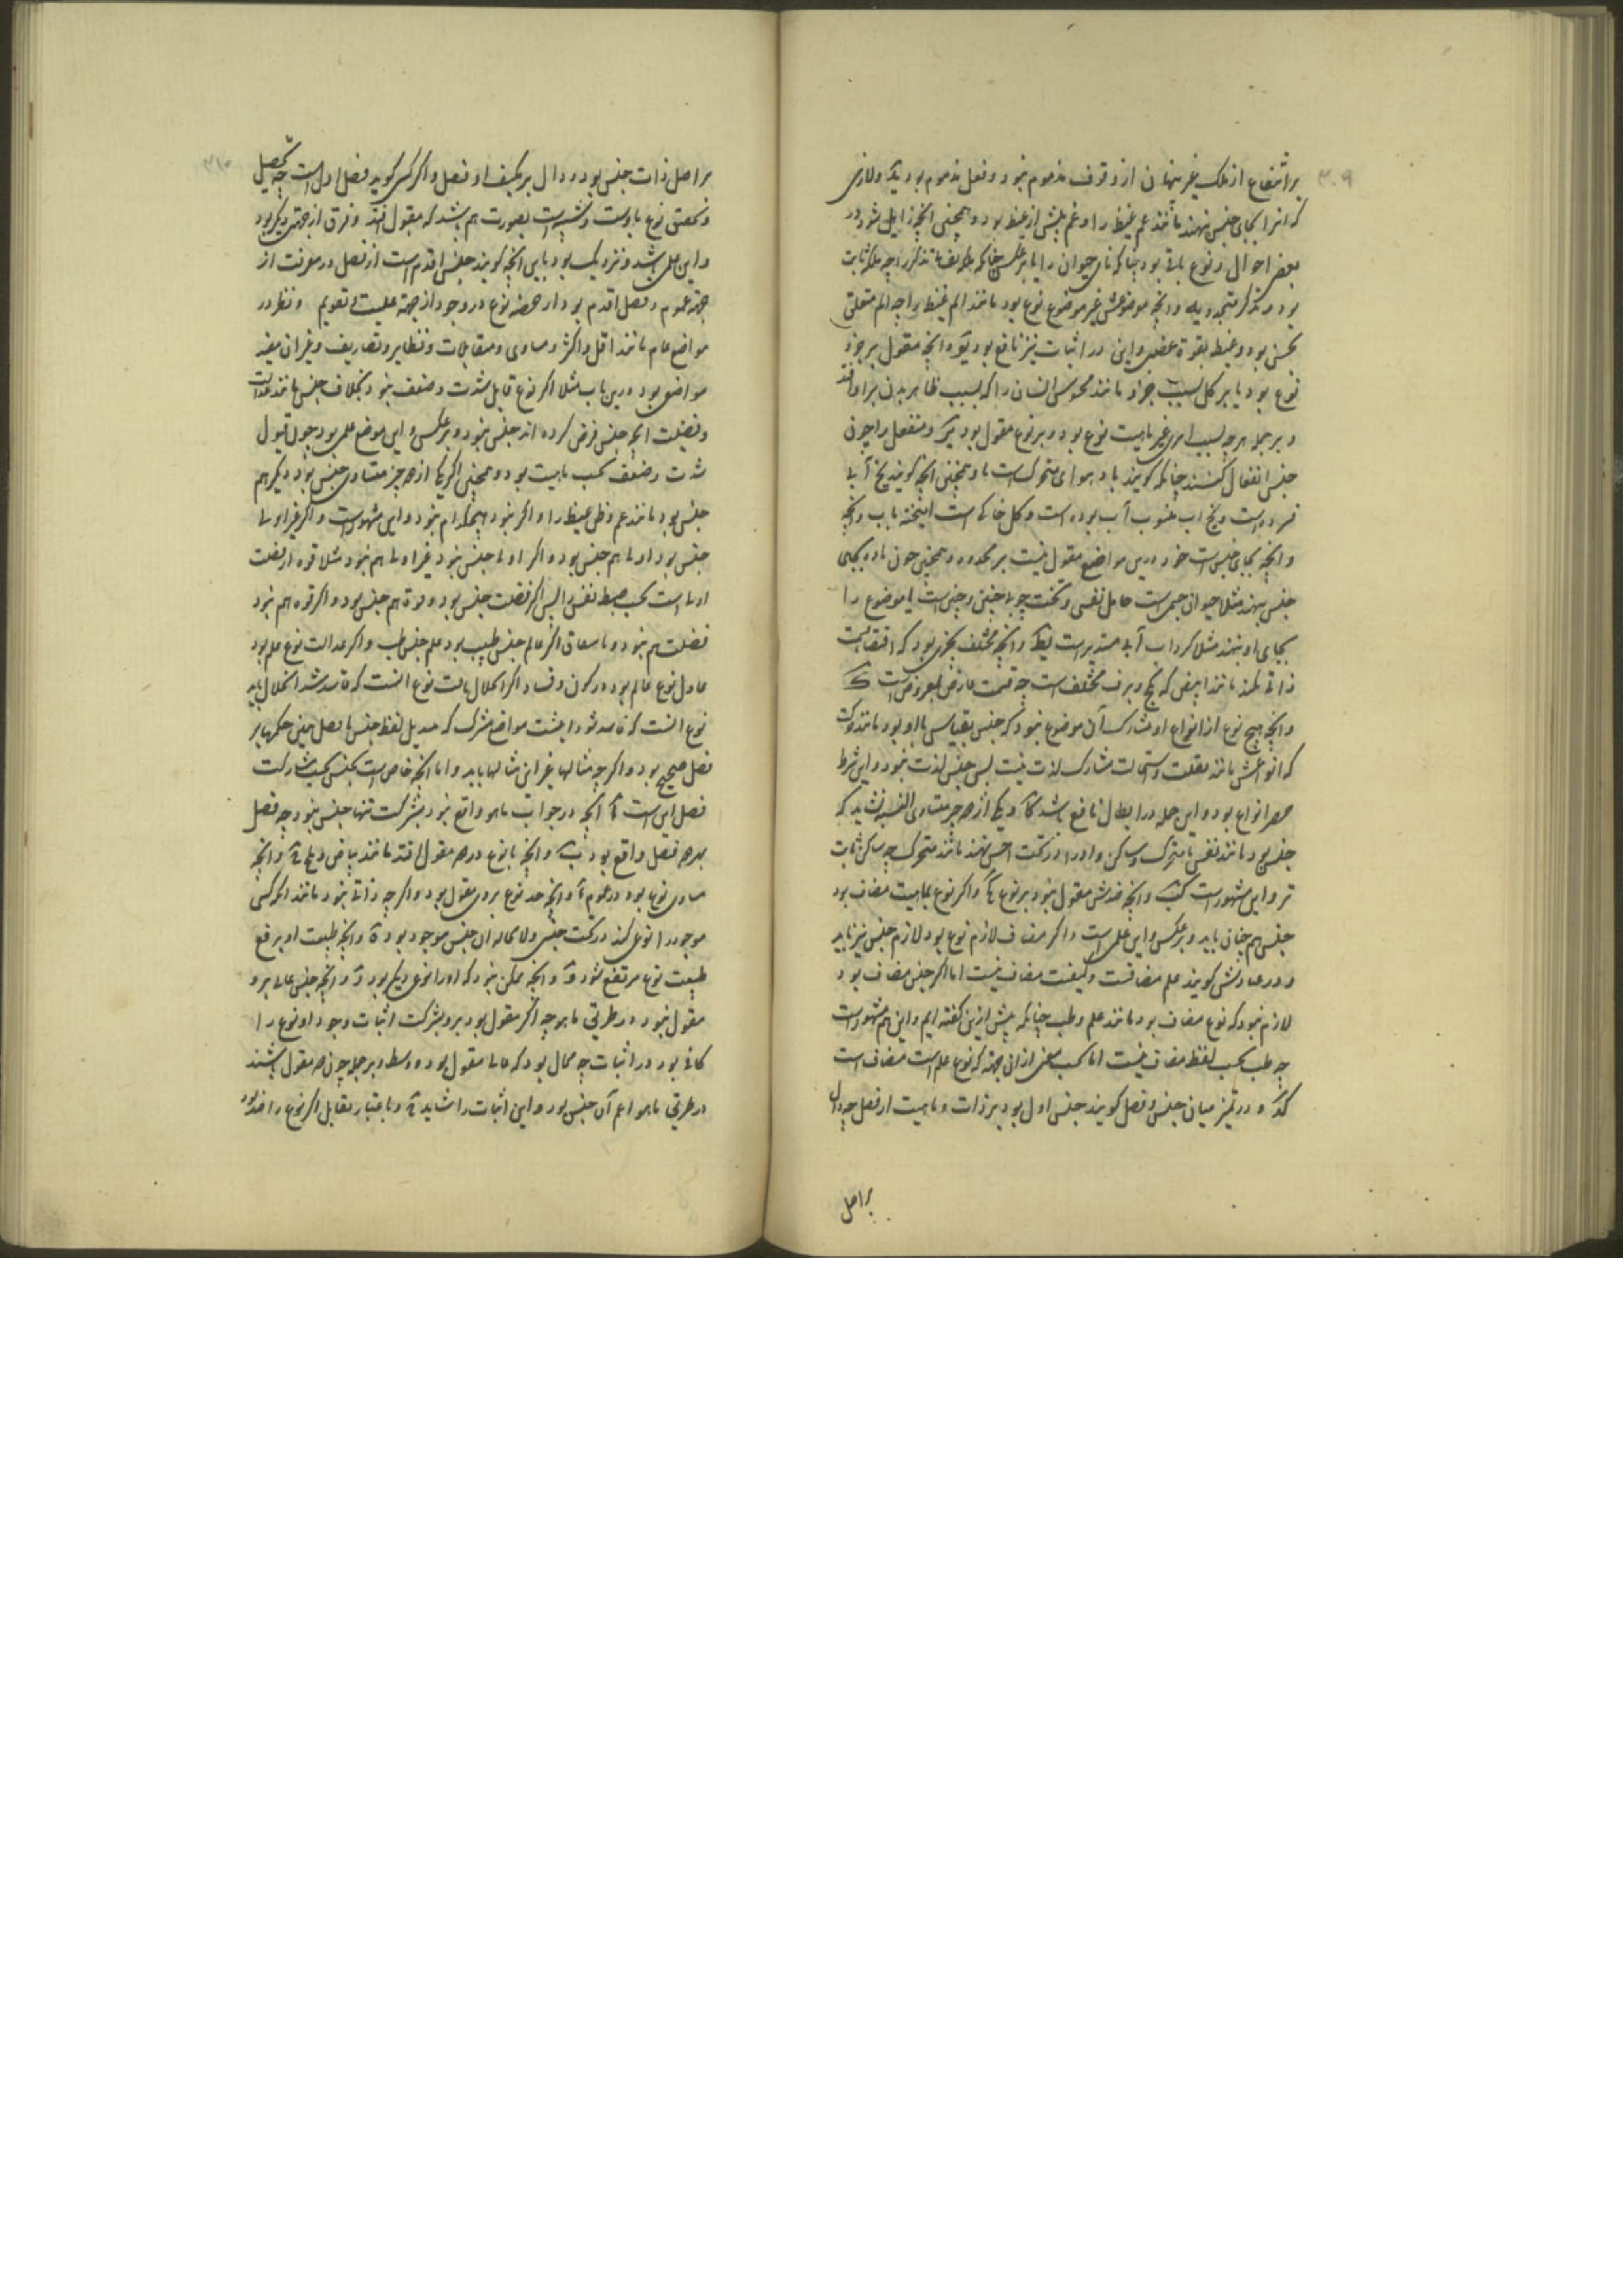 ۳۰۹
بر انتفاع از ملک غیر پنهان از و قوف مذموم نبود و فعل مذموم بود
که انرا بجای جنس نهند مانند غم غیظ را و غم پیش از غیظ بود و همچنین انچه زایل شود در
بعضی احوال و نوع باقی بود چنانکه نامی حیوان را یا بر عکس چنانکه
بود و تذکر متجدد و انچه موضوعش غیر موضوع نوع بود مانند الم غیظ را چه الم متعلق
بحس بود و غیظ بقوة غضبی و این در اثبات نیز نافع بود و انچه مقول بر جزو
نوع بود یا بر کل بسبب جزو مانند محسوس انسان را که بسبب ظاهر بدن بر او افتد
و بر جمله هر چه بسبب امری غیر ماهیت نوع بود و بر نوع مقول بود و منفعل را چون
جنس انفعال کنند چنانکه گویند باد هوای متحرک است و همچنین انچه گویند یخ آبی
فسرده است و یخ اب منسوب آب بوده است و گل خاکی است امیخته باب و انچه
و انچه بجای جنس است خود درین مواضع مقول نیست بر محدود و همچنین چون ماده بجای
جنس نهند مثلا حیوان جسمی است حامل نفس و تخت چوبی چنین و چنین است یا موضوع را
بجای او نهند مثلا گرداب آبی مستدیر است و انچه مختلف بچیزی بود که اقتضاء قسمت
ذاتی نکند مانند ابیض که گچ و برف مختلف است چه قسمت عارض بعروض است
و انچه هیچ نوع از انواع او مشارک آن موضوع نبود که جنس بقیاس با او بود مانند حرکت
که انواعش مانند نقلت و استحالت مشارک لذت نیست پس جنس لذت نبود و این شرط
حصر انواع بود و این جمله در ابطال نافع باشد و یکی از هر چیز متساوی النسبه نشاید که
جنس بود مانند نفس یا متحرک و ساکن و او را در تحت اخس نهند مانند متحرک چه ساکن ثابت
تر و این مشهور است و انچه ضدش مقول نبود بر نوع و اگر نوع بماهیت مضاف بود
جنس هم چنان باید و بر عکس و این علمی است و اگر مضاف لازم نوع بود لازم جنس نیز باید
و در عنادش گویند علم مضافست و کیفیت مضاف نیست اما اگر جنس مضاف بود
لازم نبود که نوع مضاف بود مانند علم و طب چنانکه پیش ازین گفته ایم و این هم مشهور است
چه طب بحسب لفظ مضاف نیست اما بحسب معنی از ان جهة که نوع علم است مضاف است
و در تمیز میان جنس و فصل گویند جنس اول بود بر ذات و ماهیت از فصل چه دال
بر اصل
۳۱۰
بر اصل ذات جنس بود و دال بر تکیف او فصل و اگر کسی گوید فصل اول است چه تحصیل
و تحقق نوع باوست و شبیه است بصورت هم باشد که مقبول افتد و فرق از جهتی دیگر بود
و این علمی باشد و نزدیک بود باین انچه گویند جنس اقدم است از فصل در معرفت از
جهة عموم و فصل اقدم بود از حصهٔ نوع در وجود از جهة علیت و تقویم و نظر در
مواضع عام مانند اقل و اکثر و مساوی و متقابلات و نظایر و تصاریف و غیر ان مفید
مواضعی بود درین باب مثلا اگر نوع قابل شدت و ضعف نبود بخلاف جنس مانند عدالت
و فضیلت انچه جنس فرض کرده اند جنس نبود و بر عکس و این موضع علمی بود چون قبول
شدت و ضعف بحسب ماهیت بود و همچنین اگر یکی از دو چیز متساوی جنس بود دیگر هم
جنس بود مانند غم و ظن غیظ را و اگر نبود هیچکدام نبود و این مشهور است و اگر غیر اولی
جنس بود اولی هم جنس بود و اگر اولی جنس نبود غیر اولی هم نبود مثلا قوه از فضیلت
اولی است بحسب ضبط نفس پس اگر فضیلت جنس بود و قوة هم جنس بود و اگر قوه هم نبود
فضیلت هم نبود و اگر عالم جنس طبیب بود علم جنس طب و اگر عدالت نوع علم بود
عادل نوع عالم بود و در کون و فساد اگر انحلال مالت نوع انست که فاسد شد انحلال باید
نوع انست که فاسد شود اینست مواضع مشترک که تبدیل لفظ جنس با فصل همین حکمها بر
فصل صحیح بود و اگر چه مثالها غیر این مثالها باید و اما انچه خاص است بجنس بحسب مشارکت
فصل این است انچه در جواب ماهو واقع نبود بشرکت تنها جنس نبود چه فصل
بهر دو فصل واقع بود و انچه با نوع در حد مقول افتد مانند بیاض و انچه
مساوی نوع بود در عموم و انچه حد نوع بر وی مقول بود و اگر چه ذاتی نبود مانند انکه کسی
موجود را نوع کند در تحت جنسی و لا محاله ان جنس موجود بود و انچه طبیعت او برفع
طبیعت نوع مرتفع شود و انچه ممکن نبود که او را نوعی دیگر بود و انچه جنس عالی برو
مقول نبود در طریق ماهو چه اگر مقول بود برو بشرکت اثبات وجود او نوع را
کافی بود در اثبات چه محال بود که عالی مقول بود و وسط و بر جمله چون هر دو مقول باشند
در طریق ماهو اعم آن جنس بود و این اثبات را شاید و باعتبار تقابل اگر نوع را ضد بود